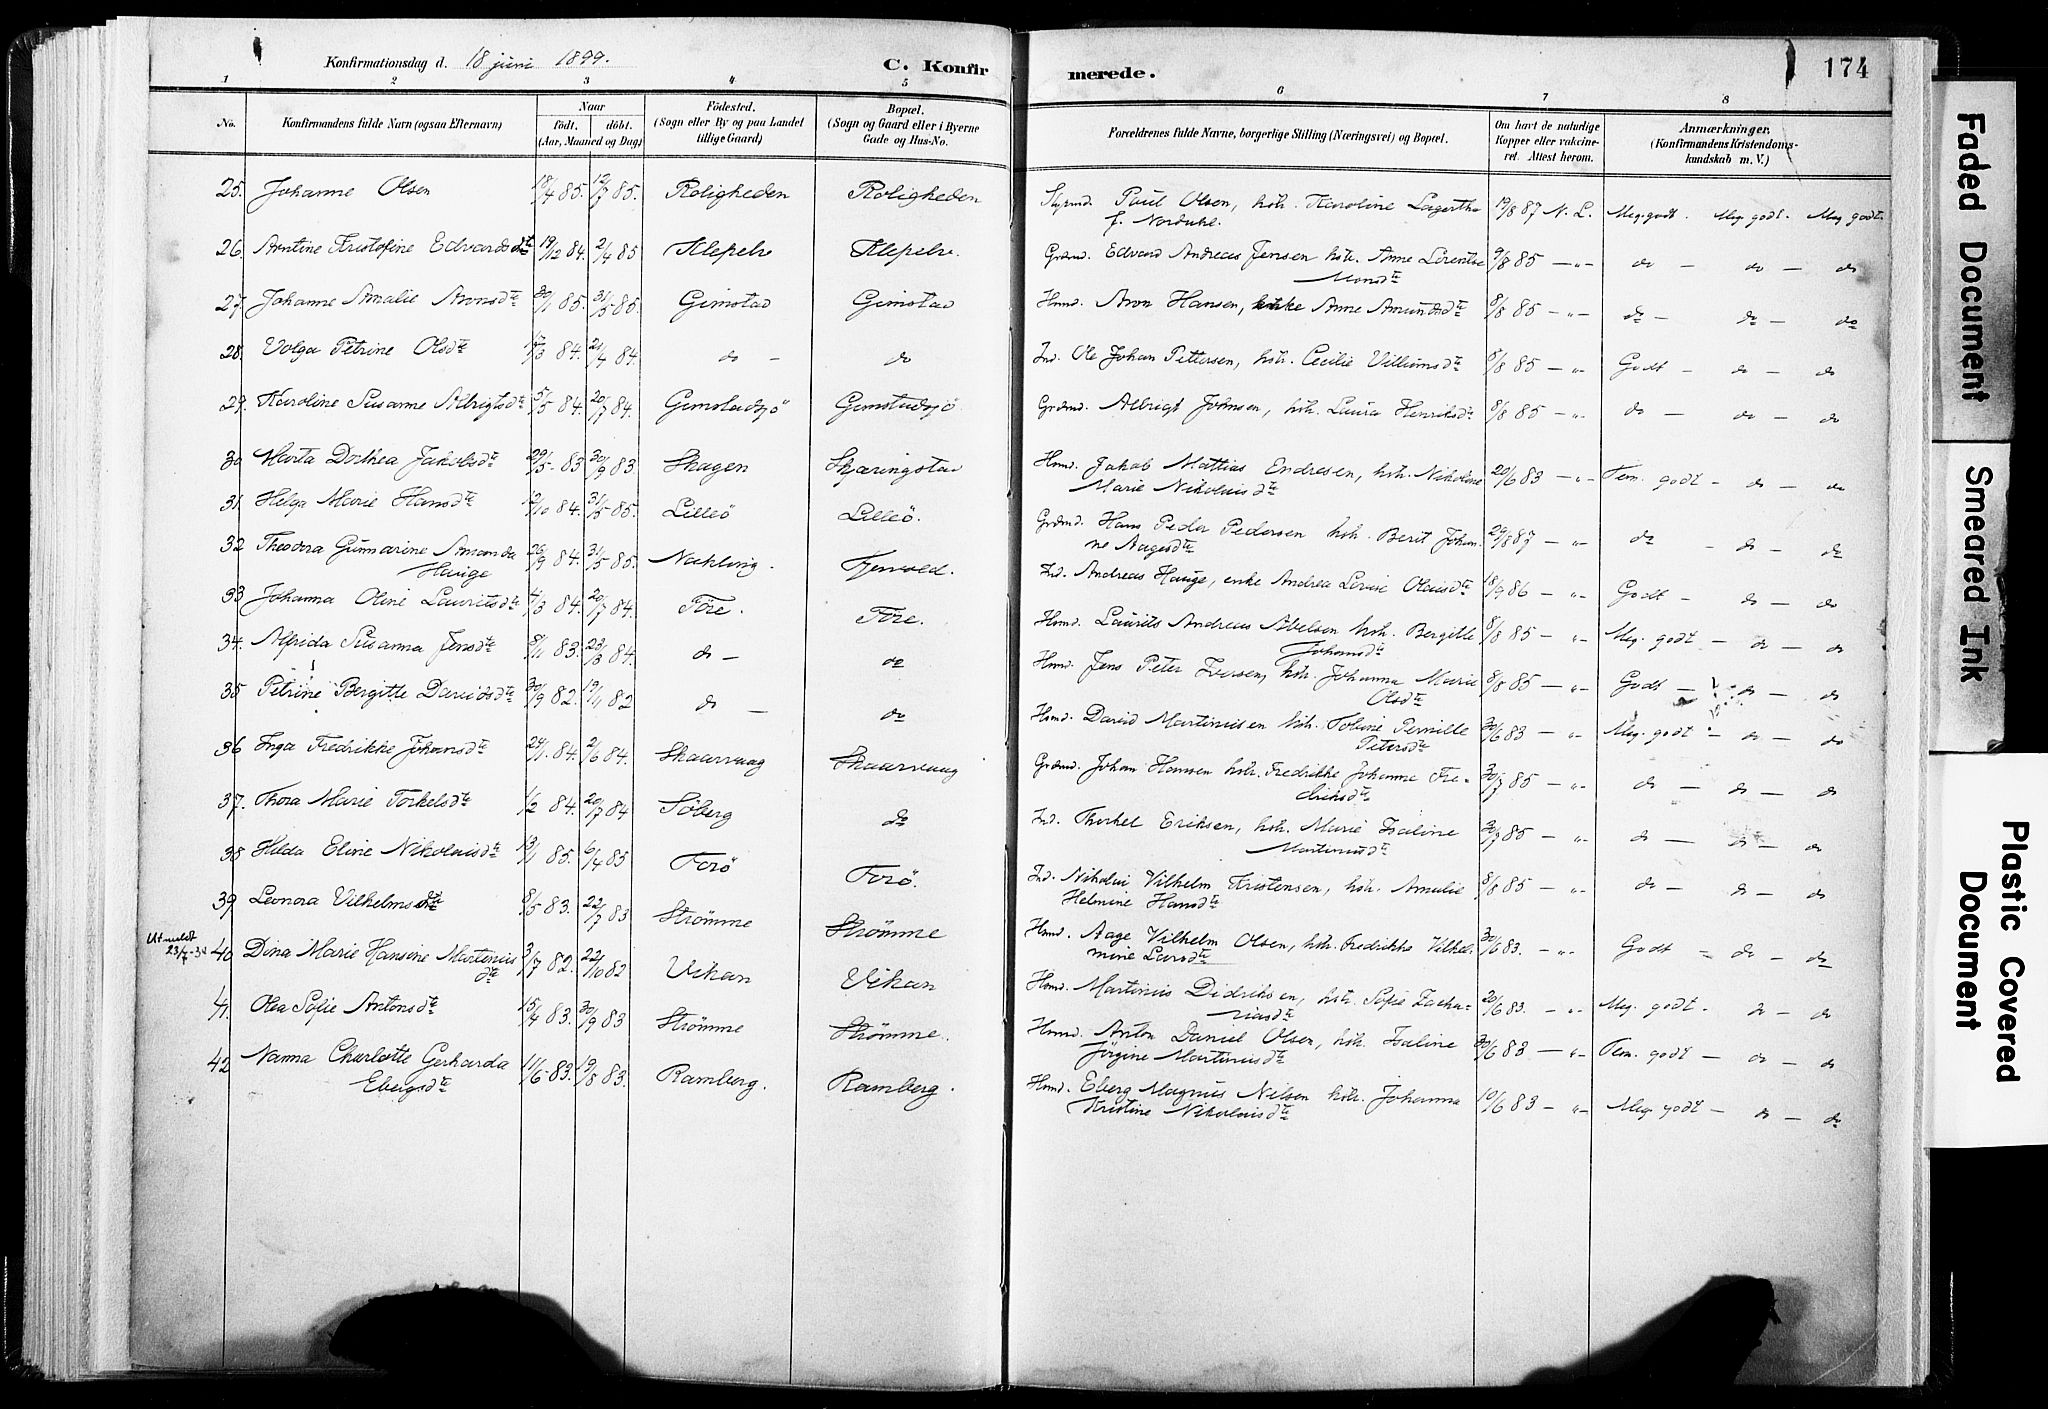 Konfirmationsdag d. 18 juni 1899.
C. Konfirmerede.
174
1 2 3 4 5 6 7 8
No.
Konfirmandens fulde Navn (ogsaa Efternavn)
Naar
født. døbt.
(Aar, Maaned og Dag)
Fødested.
(Sogn eller By og paa Landet
tillige Gaard)
Bopæl.
(Sogn og Gaard eller i Byerne
Gade og Hus-No.
Forældrenes fulde Navne, borgerlige Stilling (Næringsvei) og Bopæl.
Om havt de naturlige
Kopper eller vakcine-
ret. Attest herom.
Anmærkninger.
(Konfirmandens Kristendoms-
kundskab m. V.)
25. Johanne Olsen 18/4 85. 12/7 85. Roligheden Roligheden Styrmd. Paul Olsen, hstr. Karoline Lagertha 19/8 87 N. L. Meg. godt. Meg. godt. Meg godt.
f. Nordahl.
26. Arntine Kristofine Edvardsdtr 19/12 84. 2/4 85 Klepelv Klepelv. Grdmd. Edvard Andreas Jensen hstr. Anne Lorentse 9/8 85 — " do — do — do
Monsdtr
27. Johanne Amalie Aronsdtr 30/1 85. 31/5 85. Gimstad Gimstad Hmd. Aron Hansen, enke Anne Amundsdtr 8/8 85 — " — do — do — do
28. Volga Petrine Olsdtr 84. 21/4 84. do — do Ind. Ole Johan Pettersen, hstr. Cecilie Villumsdtr 8/8 85 — " Godt — do — do
29. Karoline Susanne Albrigtsdtr 5/5 84. 20/7 84. Gimstadsjö Gimstadsjö Grdmd. Albrigt Johnsen, hstr. Laura Henriksdtr 8/8 85 — " do — do — do
30 Marta Dorthea Jakobsdtr 29/5 83 30/9 83. Skagen Skæringstad Hmd. Jakob Mattias Endresen, hstr. Nikoline 20/6 83 — " Tem. godt — do — do
Marie Nikolaisdtr
31. Helga Marie Hansdtr 12/10 84. 31/5 85. Lilleö Lilleö. Grdmd. Hans Peder Pedersen hstr. Berit Johan- 29/8 87 — " do — do — do
ne Aagesdtr
32 Theodora Gunnarine Amanda 26/9 84. 31/5 85. Tjenvold. Ind. Andreas Hauge, enke Andrea Lovise Olausdtr 18/9 86 — " Godt — do — do
Hauge
33 Johanna Oline Lauritsdtr 4/3 84. 20/7 84. Töre. Töre. Hmd. Laurits Andreas Abelsen hstr. Bergitte 8/8 85 — " Meg. godt — do — do
Johansdtr
34. Alfrida Susanna Jensdtr 8/11 83. 23/3 84. do — do Hmd. Jens Peter Iversen, hstr. Johanna Marie 8/8 85 — " Godt — do — do
Olsdtr
35 Petrine Bergitte Davidsdtr 30/9 82. 19/11 82 do — do Hmd. David Martinusen hstr. Tobine Pernille 30/6 83 — " Meg. godt — do — do
Petersdtr
36 Inga Fredrikke Johansdtr 24/1 84. 2/6 84. Skaarvaag Skaarvaag Grdmd. Johan Hansen hstr. Fredrikke Johanne Fre- 30/7 85 — " do — do — do
driksdtr
37. Thora Marie Torkelsdtr 1/2 84. 20/7 84 Söberg do Ind. Thorkel Eriksen, hstr. Marie Isaline 30/7 85 — " do — do — do
Martinusdtr
38 Hilda Eline Nikolaisdtr 13/1 85. 6/4 85 Forö Forö. Ind. Nikolai Vilhelm Kristensen, hstr. Amalie 8/8 85 — " do — do — do
Helmine Hansdtr
39 Leonora Vilhelmsdtr 8/5 83. 22/7 83 Strömme Strömme Hmd. Aage Vilhelm Olsen, hstr. Fredrikke Vilhel- 30/6 83. — " Godt — do — do
mine Larsdtr
Utmeldt
23/7-32
40 Dina Marie Hansine Martinus 3/7 82. 22/10 82 Vikan Vikan Hmd. Martinus Didriksen, hstr. Sofie Zacha- 20/6 83. — " Meg. godt. do — do
dtr riasdtr
41. Olea Sofie Antonsdtr 15/4 83. 30/9 83 Strömme Strömme. Hmd. Anton Daniel Olsen, hstr. Isaline 30/6 83 — " Tem. godt — do — do
Jörgine Martinusdtr
42 Nanna Charlotte Gerharda 11/6 83. 19/8 83. Ramberg. Ramberg. Hmd. Eberg Magnus Nilsen hstr. Johanna 10/6 83 — " Meg godt — do — do
Ebergsdtr Kristine Nikolaisdtr
Faded Document
Smeared Ink
Plastic Covered
Document